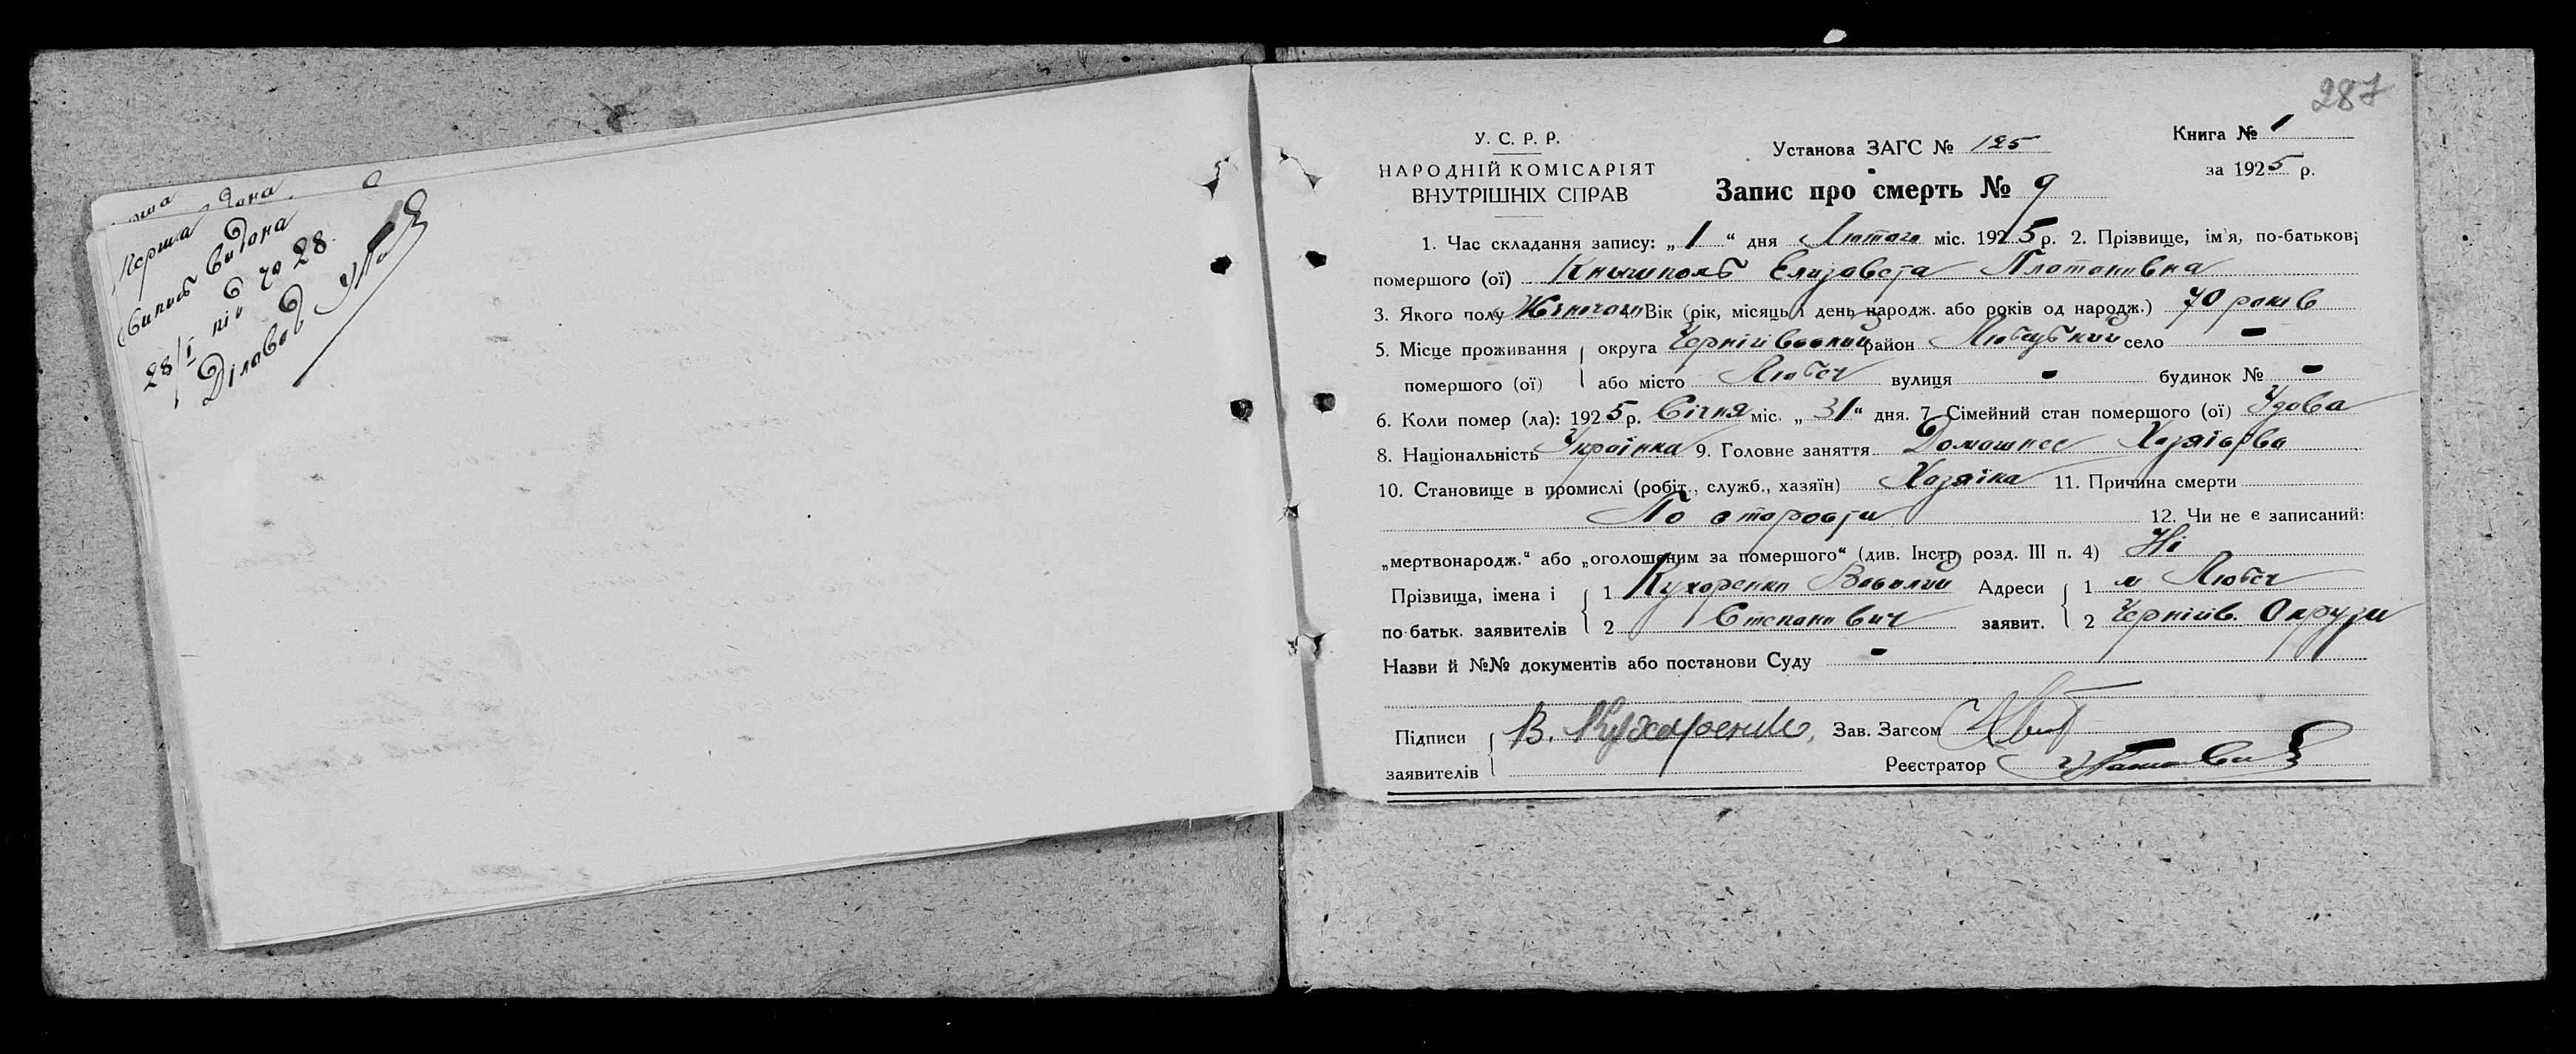 Перша
Выпись видана
28/I під № 28
Діловод
287
У. С. Р. Р.
НАРОДНІЙ КОМІСАРІЯТ
ВНУТРІШНІХ СПРАВ
Установа ЗАГС № 125
Книга № 1
за 1925 р.
Запис про смерть № 9
1. Час складання запису: „ 1 “ дня Лютого міс. 1925 р. 2. Прізвище, ім'я, по-батькові
помершого (ої) Елизавета Платоновна
3. Якого полу Жіночого Вік (рік, місяць і день народж. або років од народж.) 70 років
5. Місце проживання округа Чернігівський район Любецький село -
помершого (ої) або місто Любеч вулиця - будинок № -
6. Коли помер (ла): 1925 р. Січня міс. „ 31 “ дня. 7. Сімейний стан помершого (ої) Удова
8. Національність Українка 9. Головне заняття Домашнее Хазяйство
10. Становище в промислі (робіт., служб., хазяїн) Хазяїка 11. Причина смерти
По старости 12. Чи не є записаний:
„мертвонародж.“ або „оголошеним за помершого“ (див. Інстр. розд. III п. 4) Ні
Прізвища, імена і 1 Кухоренко Василий Адреси 1 м Любеч
по-батьк. заявителів 2 Степанович заявит. 2 Чернігів. Округи
Назви й №№ документів або постанови Суду -
Підписи В. Кухаренко, Зав. Загсом
заявителів Реєстратор